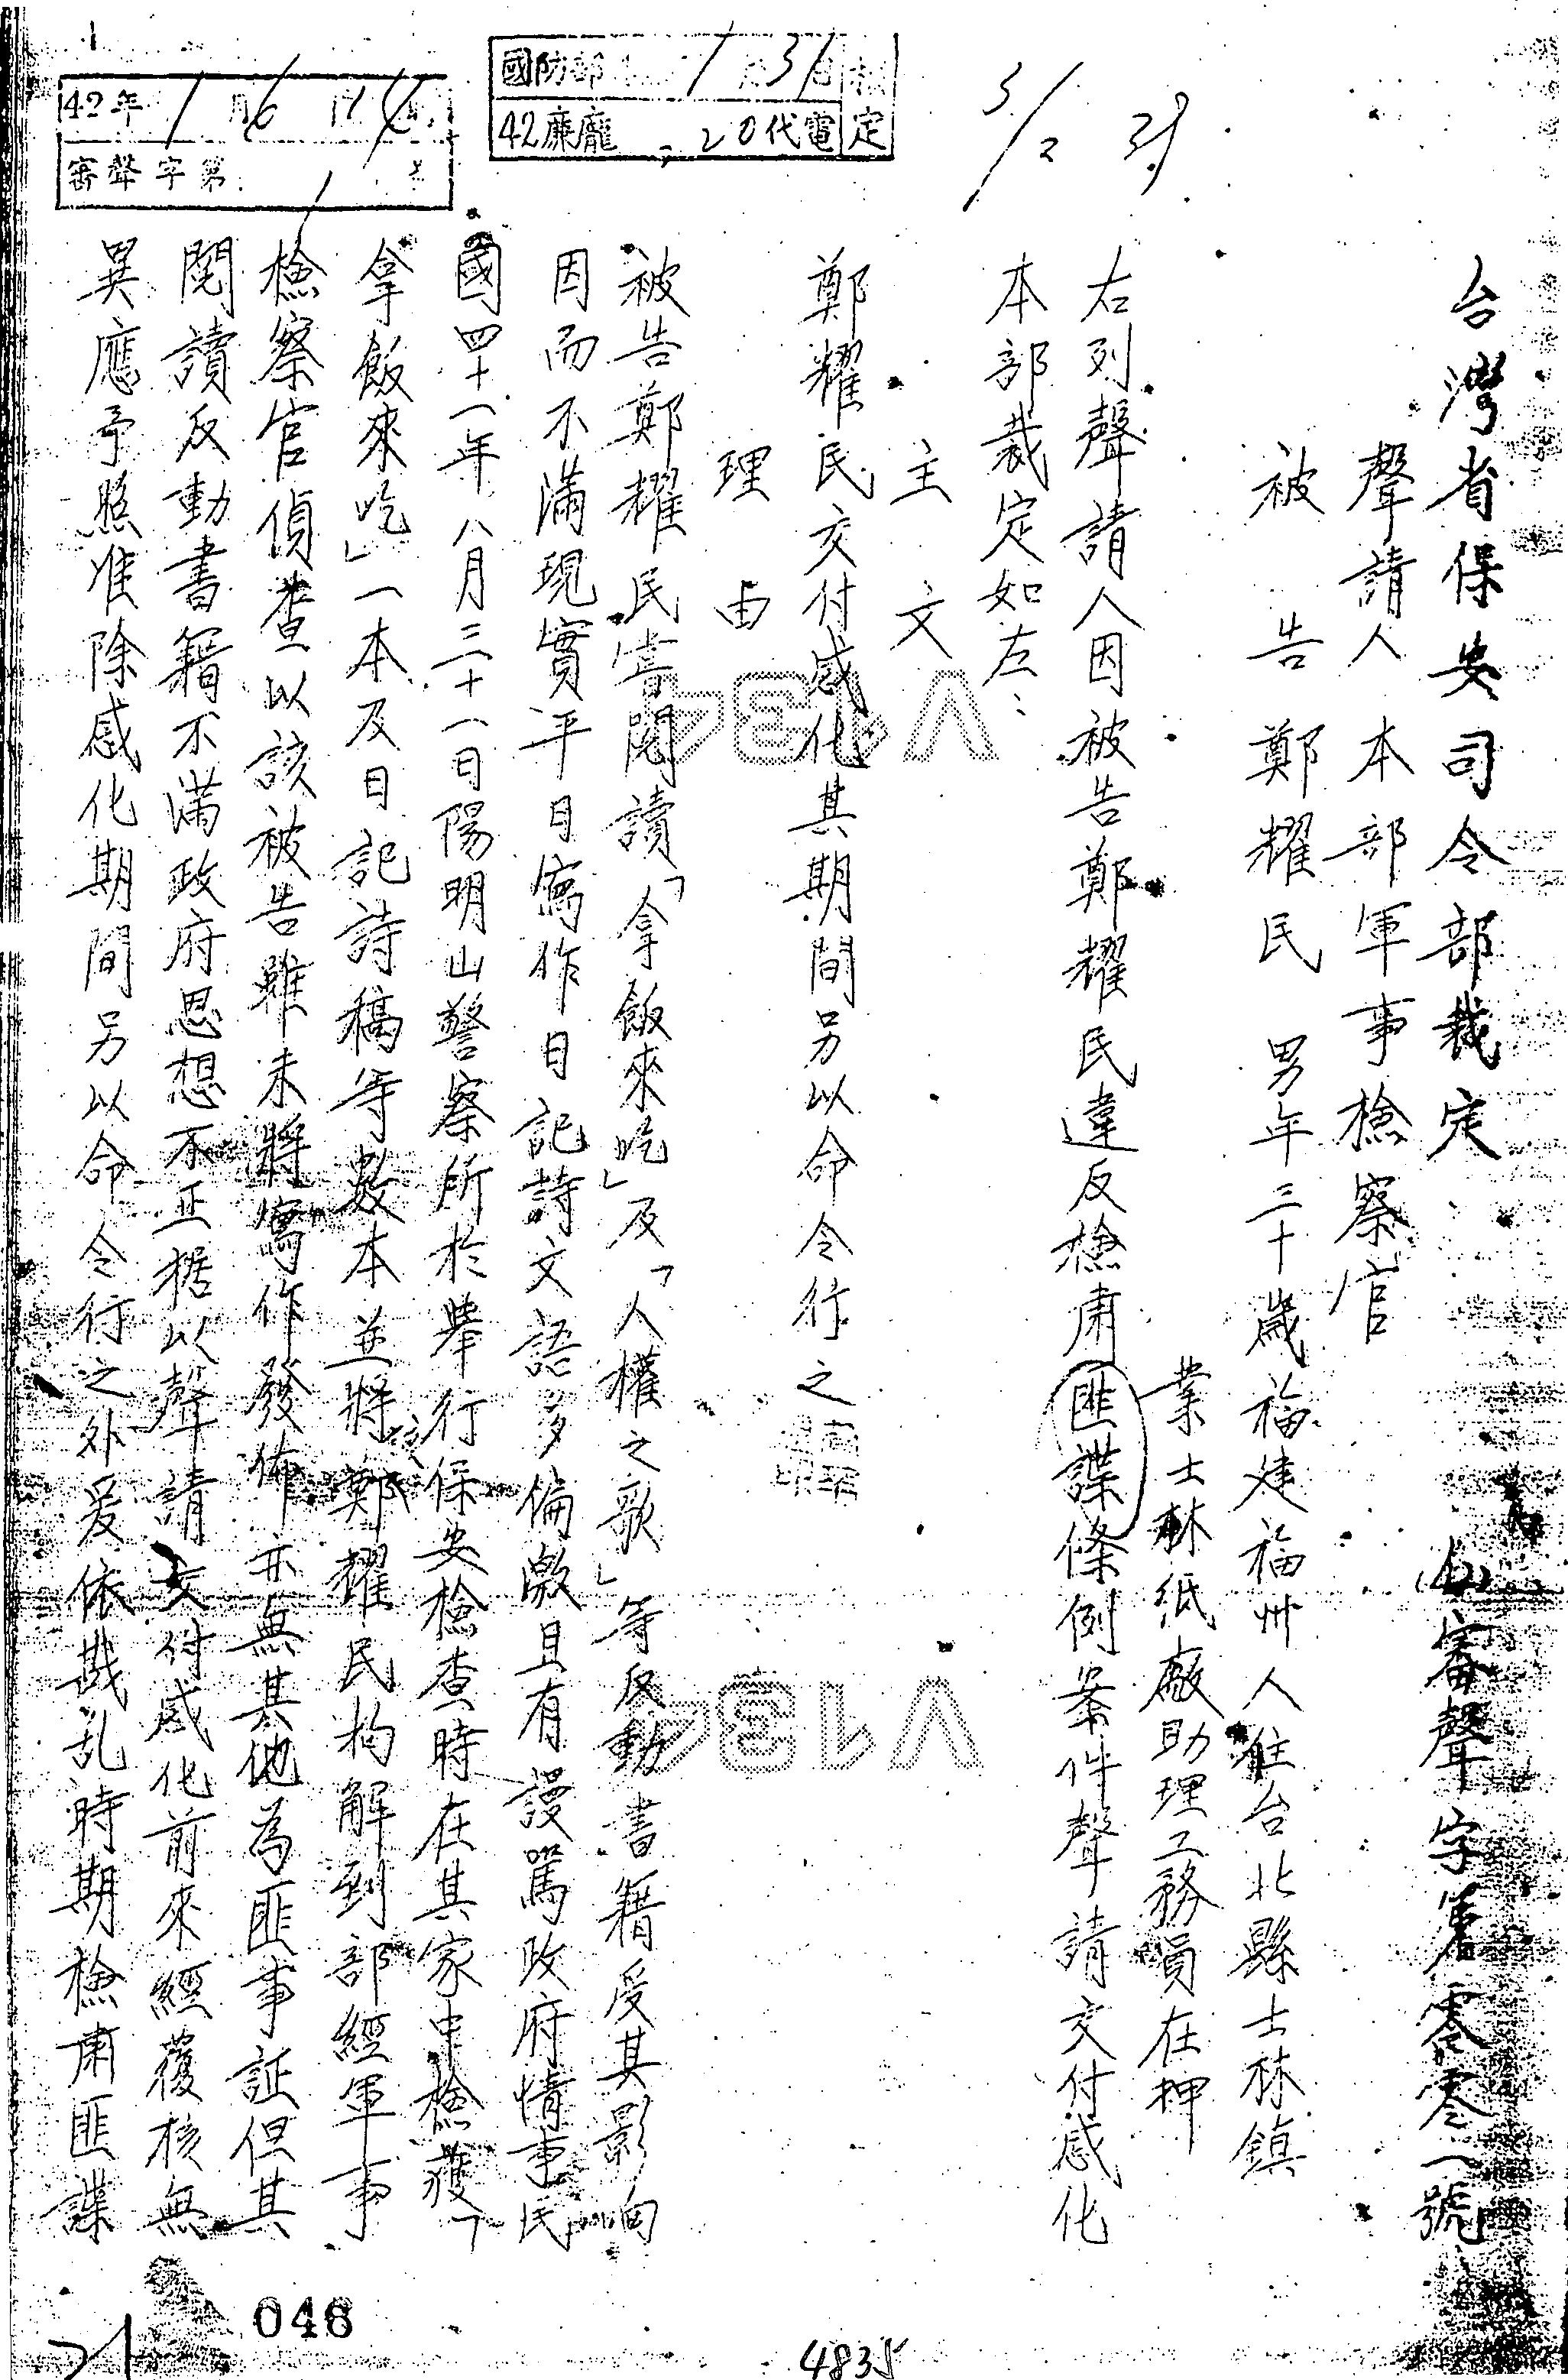 台灣省保安司令部裁定
審聲字第零零一號
聲請人 本部軍事檢察官
被告 鄭耀民 男年三十歲福建福州人住台北縣士林鎮
業士林紙廠助理工務員在押
右列聲請人因被告鄭耀民違反檢肅匪諜條例案件聲請交付感化
本部裁定如左：
主文
鄭耀民交付感化其期間另以命令行之
理由
被告鄭耀民嘗閱讀「拿飯來吃」及「人權之歌」等反動書籍受其影响
因而不滿現實平日寫作日記詩文語多偏激且有謾罵政府情事民
國四十一年八月三十一日陽明山警察所於舉行保安檢查時在其家中檢獲「
拿飯來吃」一本及日記詩稿等數本並將鄭耀民拘解到部經軍事
檢察官偵查以該被告雖未將寫作發佈亦無其他為匪事証但其
閱讀反動書籍不滿政府思想不正据以聲請交付感化前來經覆核無
異應予照准除感化期間另以命令行之外爰依戡乱時期檢肅匪諜
國防部 1 31 核定
42廉龐 20代電
42年1月6日
審聲字第1號
3/2
V134
V134
048
4835